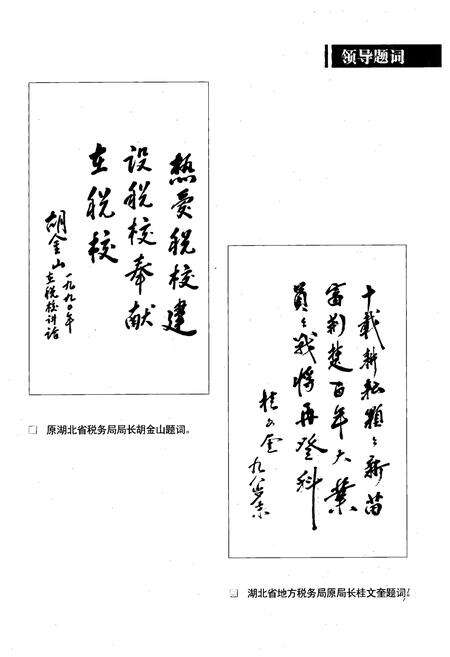 领导题词
热爱税校建
设税校奉献
在税校
胡金山一九九〇年
在税校讲话
原湖北省税务局局长胡金山题词。
十载耕耘颗々新苗
富荆楚百年大业
员々战将再登科
桂文奎九八岁末
湖北省地方税务局原局长桂文奎题词